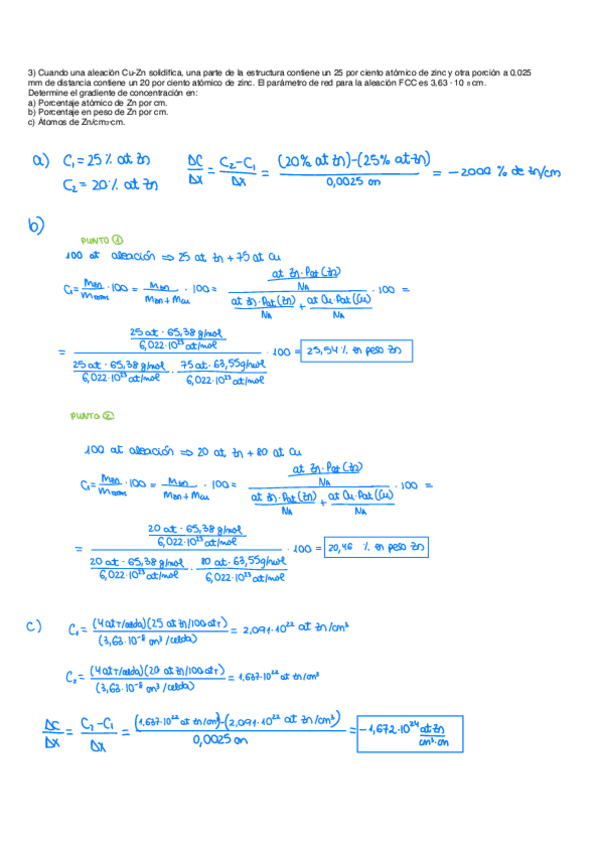 3) Cuando una aleación Cu-Zn solidifica, una parte de la estructura contiene un 25 por ciento atómico de zinc y otra porción a 0,025
mm de distancia contiene un 20 por ciento atómico de zinc. El parámetro de red para la aleación FCC es 3,63 · 10 -8 cm.
Determine el gradiente de concentración en:
a) Porcentaje atómico de Zn por cm.
b) Porcentaje en peso de Zn por cm.
c) Átomos de Zn/cm3·cm.
a) C₁ = 25% at Zn
C₂ = 20% at Zn
ΔC/ΔX = (C₂-C₁)/ΔX = ((20% at Zn)-(25% at Zn))/(0,0025 cm) = -2000 % de Zn/cm
b)
PUNTO ①
100 at aleación ⇒ 25 at Zn + 75 at Cu
C₁ = (m Zn/m) · 100 = (m Zn/(m Zn + m Cu)) · 100 = ((at Zn · Pat (Zn))/NA)/((at Zn · Pat (Zn))/NA + (at Cu · Pat (Cu))/NA) · 100 =
= ((25 at · 65,38 g/mol)/(6,022·10²³ at/mol))/((25 at · 65,38 g/mol)/(6,022·10²³ at/mol) · (75 at · 63,55 g/mol)/(6,022·10²³ at/mol)) · 100 = 25,54 % en peso Zn
PUNTO ②
100 at aleación ⇒ 20 at Zn + 80 at Cu
C₁ = (m Zn/m) · 100 = (m Zn/(m Zn + m Cu)) · 100 = ((at Zn · Pat (Zn))/NA)/((at Zn · Pat (Zn))/NA + (at Cu · Pat (Cu))/NA) · 100 =
= ((20 at · 65,38 g/mol)/(6,022·10²³ at/mol))/((20 at · 65,38 g/mol)/(6,022·10²³ at/mol) · (80 at · 63,55 g/mol)/(6,022·10²³ at/mol)) · 100 = 20,46 % en peso Zn
c) C₁ = ((4 at T/celda)(25 at Zn/100 at T))/(3,63·10⁻⁸ cm³/celda) = 2,091·10²² at Zn/cm³
C₂ = ((4 at T/celda)(20 at Zn/100 at T))/(3,63·10⁻⁸ cm³/celda) = 1,637·10²² at Zn/cm³
ΔC/ΔX = (C₂-C₁)/ΔX = ((1,637·10²² at Zn/cm³)-(2,091·10²² at Zn/cm³))/(0,0025 cm) = -1,672·10²⁴ at Zn/(cm³·cm)